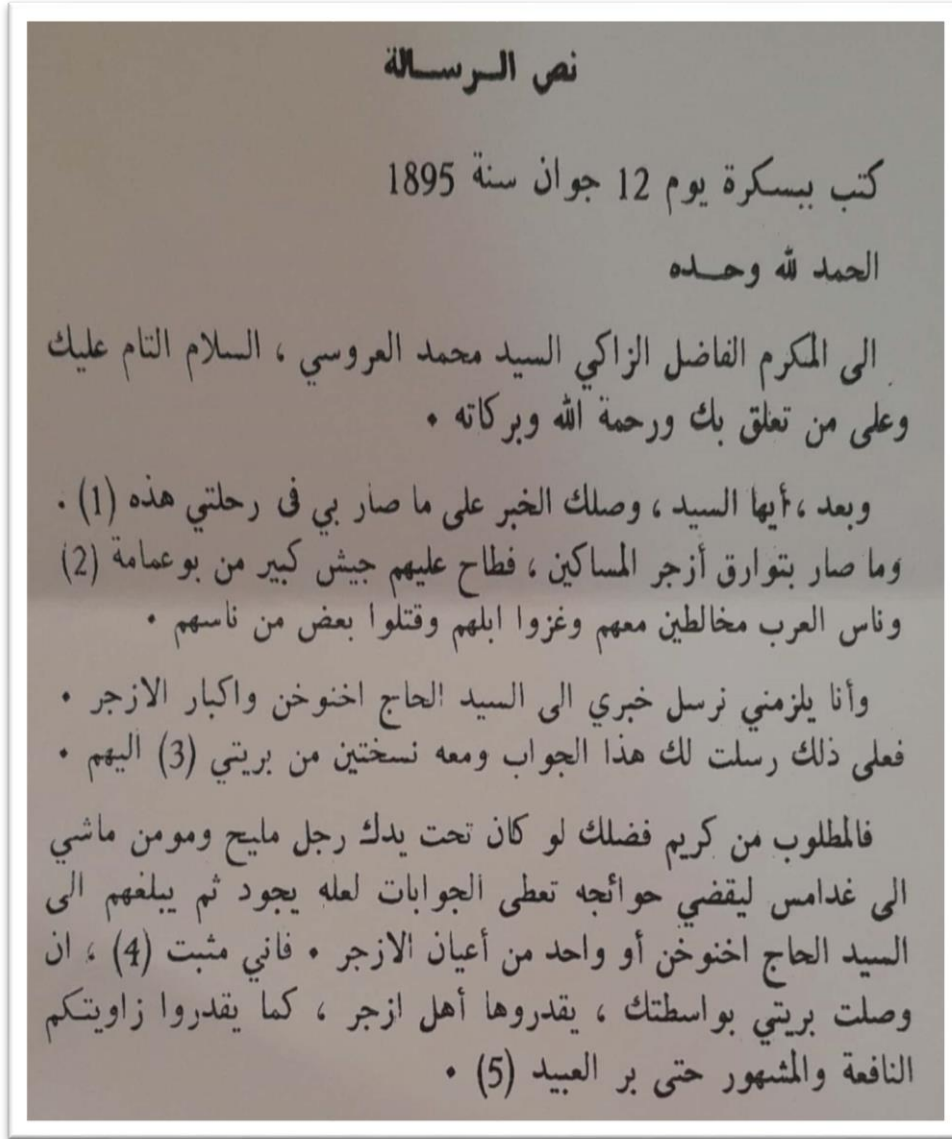 نص الرسالة
كتب ببسكرة يوم 12 جوان سنة 1895
الحمد لله وحده
الى المكرم الفاضل الزاكي السيد محمد العروسي ، السلام التام عليك
وعلى من تعلق بك ورحمة الله وبركاته .
وبعد ، أيها السيد ، وصلك الخبر على ما صار بي فى رحلتي هذه (1) .
وما صار بتوارق أزجر المساكين ، فطاح عليهم جيش كبير من بوعمامة (2)
وناس العرب مخالطين معهم وغزوا ابلهم وقتلوا بعض من ناسهم .
وأنا يلزمني نرسل خبري الى السيد الحاج اخنوخن واكبار الازجر .
فعلى ذلك رسلت لك هذا الجواب ومعه نسختين من بريتي (3) اليهم .
فالمطلوب من كريم فضلك لو كان تحت يدك رجل مليح ومومن ماشي
الى غدامس ليقضي حوائجه تعطى الجوابات لعله يجود ثم يبلغهم الى
السيد الحاج اخنوخن أو واحد من أعيان الازجر . فاني مثبت (4) ، ان
وصلت بريتي بواسطتك ، يقدروها أهل ازجر ، كما يقدروا زاويتكم
النافعة والمشهور حتى بر العبيد (5) .